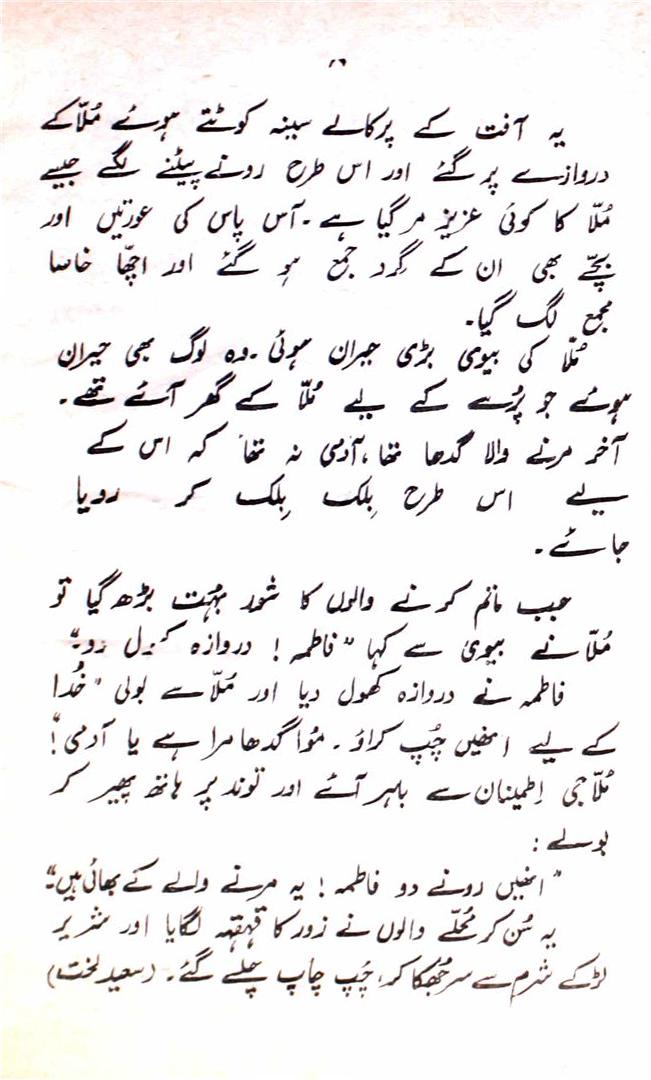 یہ آفت کے پرکالے سینہ کوٹتے ہوئے مُلّا کے
دروازے پر گئے اور اس طرح رونے پیٹنے لگے جیسے
مُلّا کا کوئی عزیز مر گیا ہے ۔ آس پاس کی عورتیں اور
بچّے بھی ان کے گِرد جمع ہو گئے اور اچّھا خاصا
مجمع لگ گیا۔
مُلّا کی بیوی بڑی حیران ہوئی ۔ وہ لوگ بھی حیران
ہوئے جو پُرسے کے لیے مُلّا کے گھر آئے تھے ۔
آخر مرنے والا گدھا تھا، آدمی نہ تھا کہ اس کے
لیے اس طرح بِلک بِلک کر رویا
جائے ۔
جب ماتم کرنے والوں کا شور بہُت بڑھ گیا تو
مُلّا نے بیوی سے کہا "فاطمہ ! دروازہ کھول دو۔"
فاطمہ نے دروازہ کھول دیا اور مُلّا سے بولی "خُدا
کے لیے انھیں چُپ کراؤ ۔ مُوا گدھا مرا ہے یا آدمی !"
مُلّا جی اِطمینان سے باہر آئے اور توند پر ہاتھ پھیر کر
بولے :
"انھیں رونے دو فاطمہ ! یہ مرنے والے کے بھائی ہیں۔"
یہ سُن کر مُحلّے والوں نے زور کا قہقہہ لگایا اور شریر
لڑکے شرم سے سر جُھکا کر، چُپ چاپ چلے گئے ۔ (سعید لخت)